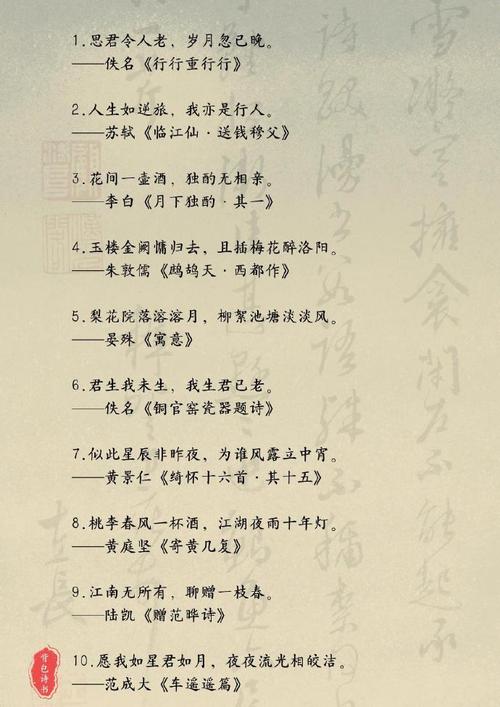 1.思君令人老，岁月忽已晚。
——佚名《行行重行行》
2.人生如逆旅，我亦是行人。
——苏轼《临江仙·送钱穆父》
3.花间一壶酒，独酌无相亲。
——李白《月下独酌·其一》
4.玉楼金阙慵归去，且插梅花醉洛阳。
——朱敦儒《鹧鸪天·西都作》
5.梨花院落溶溶月，柳絮池塘淡淡风。
——晏殊《寓意》
6.君生我未生，我生君已老。
——佚名《铜官窑瓷器题诗》
7.似此星辰非昨夜，为谁风露立中宵。
——黄景仁《绮怀十六首·其十五》
8.桃李春风一杯酒，江湖夜雨十年灯。
——黄庭坚《寄黄几复》
9.江南无所有，聊赠一枝春。
——陆凯《赠范晔诗》
10.愿我如星君如月，夜夜流光相皎洁。
——范成大《车遥遥篇》
背包诗书